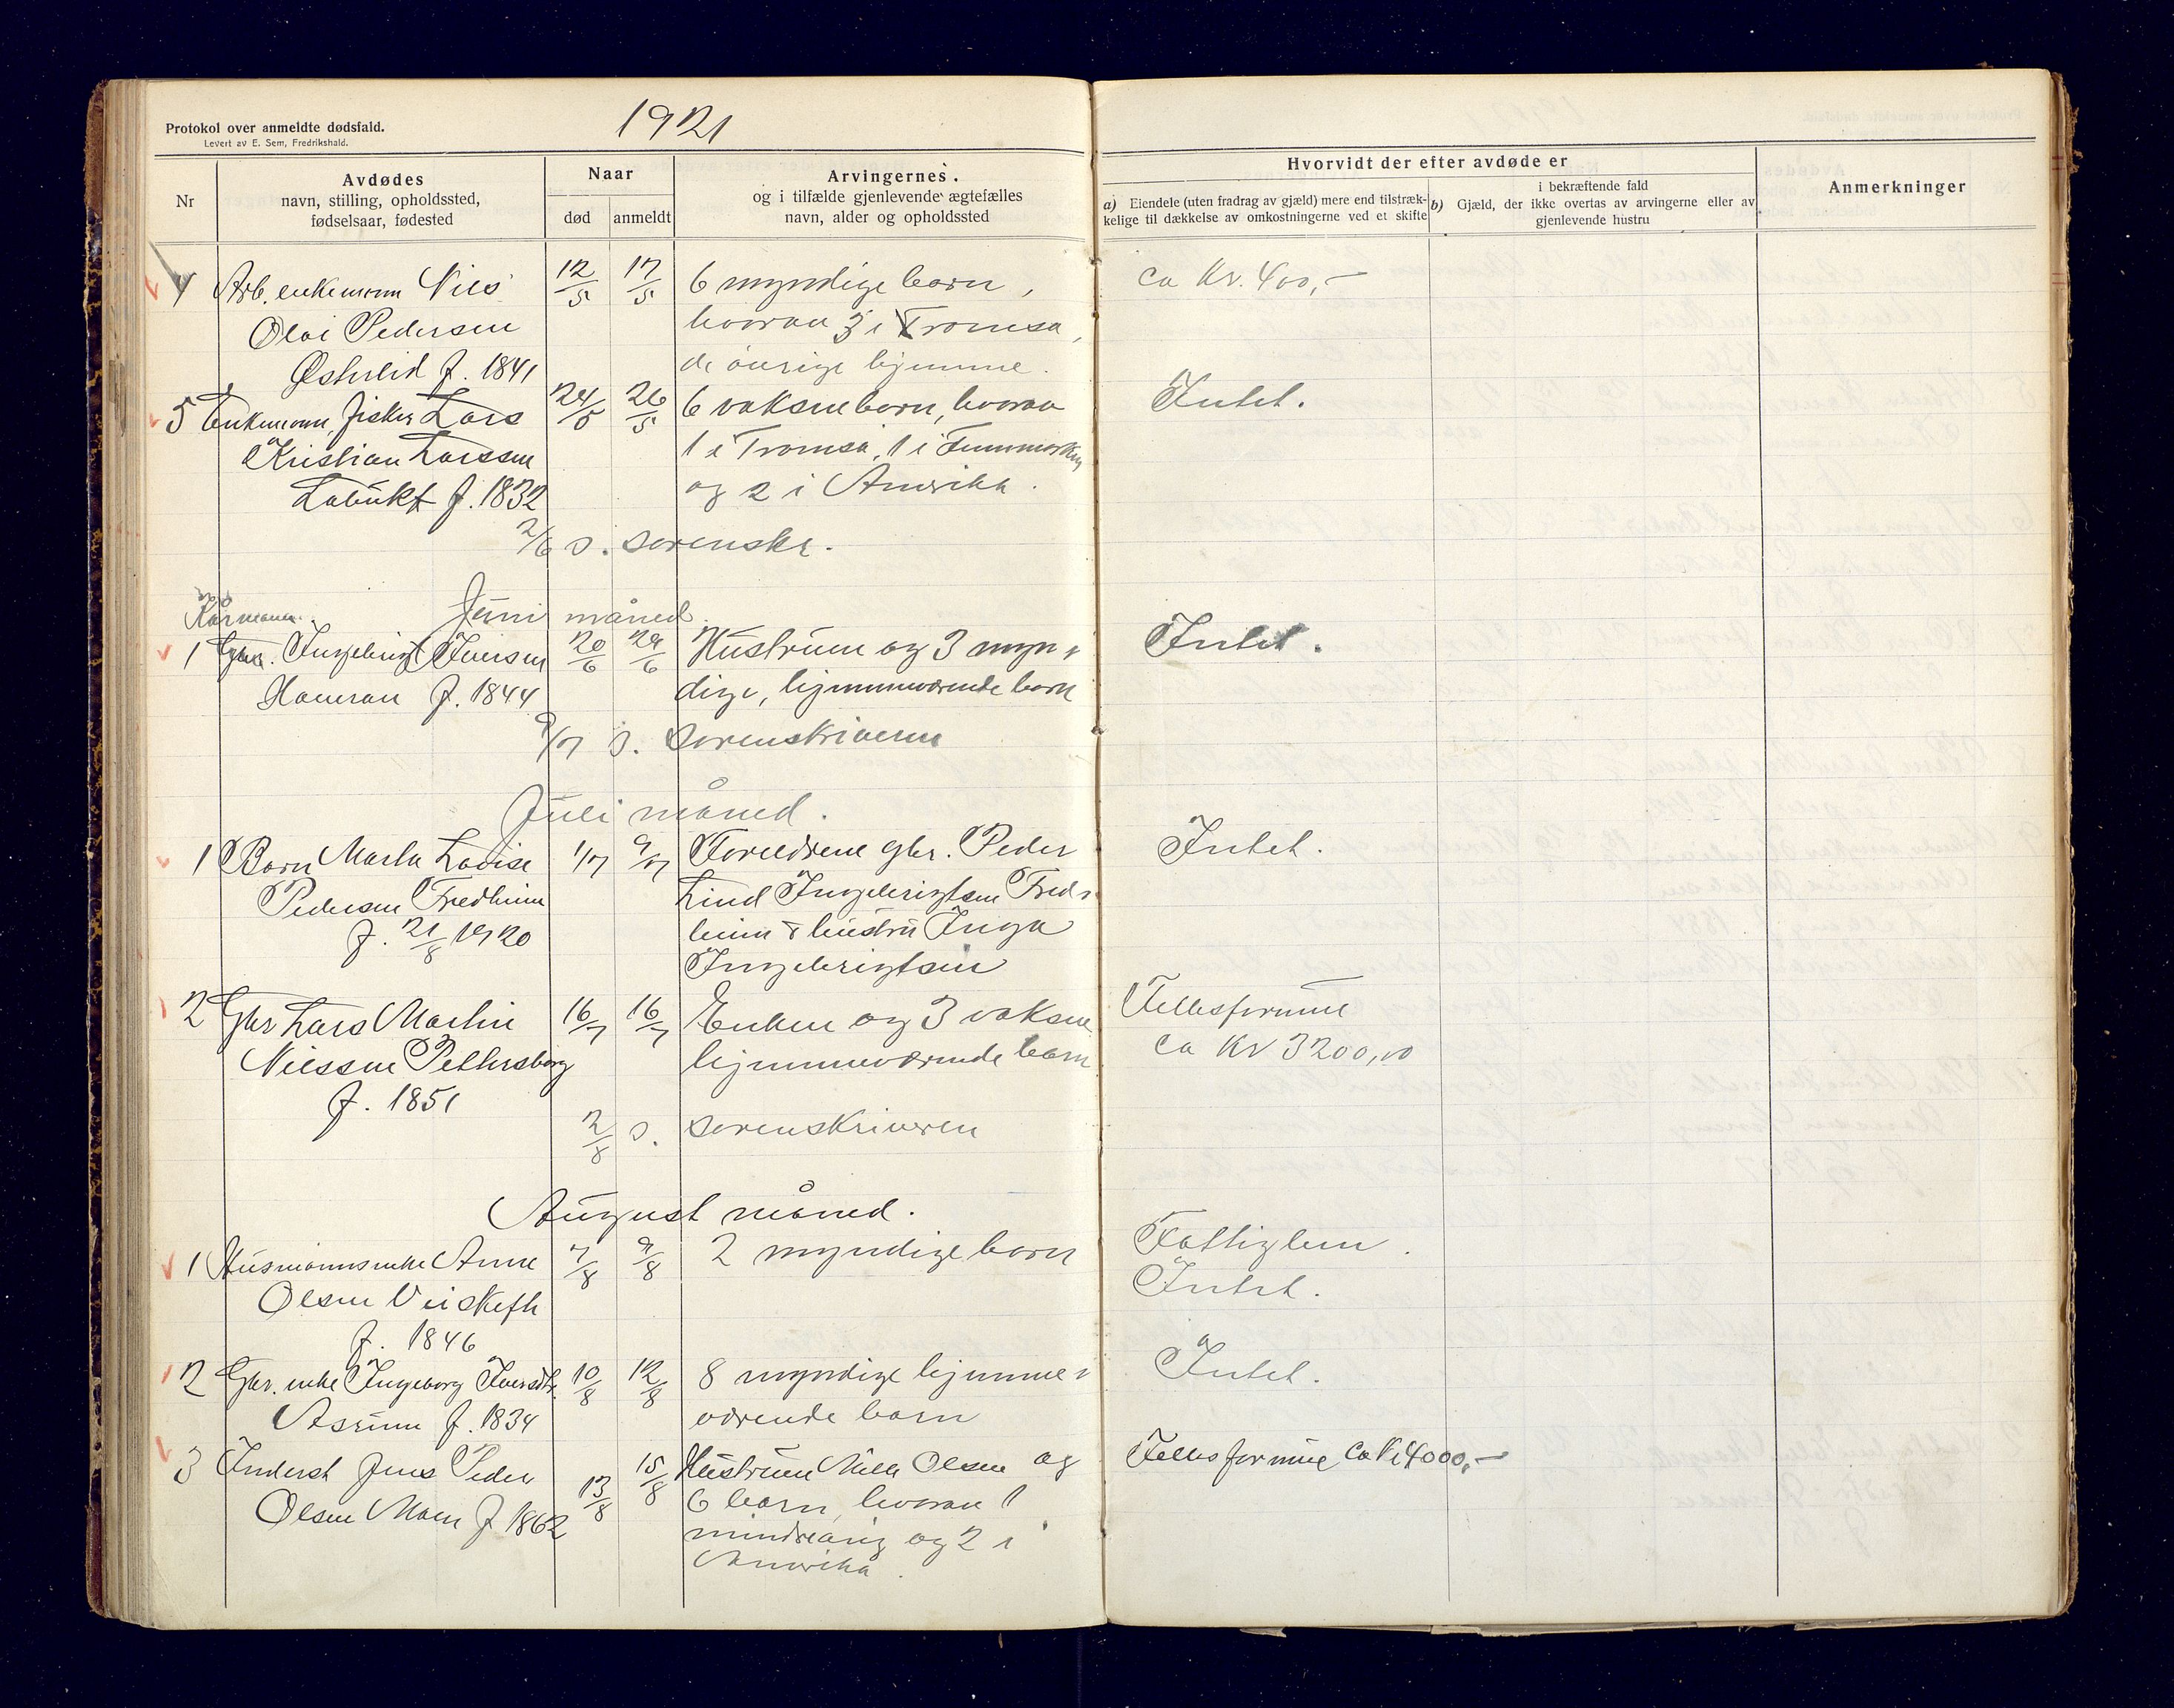 1921
Protokol over anmeldte dødsfald.
Levert av E. Sem, Fredrikshald.
Nr
Avdødes
navn, stilling, opholdssted,
fødselsaar, fødested
Naar
død
anmeldt
Arvingernes.
og i tilfælde gjenlevende ægtefælles
navn, alder og opholdssted
Hvorvidt der efter avdøde er
a) Eiendele (uten fradrag av gjæld) mere end tilstræk-
kelige til dækkelse av omkostningerne ved et skifte
i bekræftende fald
b) Gjæld, der ikke overtas av arvingerne eller av
gjenlevende hustru
Anmerkninger
4 Arb. enkemann Nils 12/5 17/5 6 myndige barn, ca Kr. 400,-
Olai Pedersen hvorav 3 i Tromsø,
Østreid f. 1841 de øvrige hjemme.
5 Enkemann, fisker Lars 24/5 26/5 6 voksne barn, hvorav Intet.
Kristian Larssen 1 i Tromsø, 1 i Finnmarken
Labukt f. 1832 og 2 i Amerika.
2/6 s. sorenskr.
Kårmann Juni måned
1 Gbr. Ingebrigt Iversen 20/6 29/6 Hustruen og 3 myn- Intet.
Hameran f. 1844 dige, hjemmeværende barn
9/7 s. sorenskriveren
Juli måned.
1 Barn Marta Lovise 1/7 9/7 Foreldrene gbr. Peder Intet.
Pedersen Fredheim Lind Ingebrigtsen Fred-
f. 21/8 1920 heim & hustru Inga
Ingebrigtsen
2 Gbr Lars Martin 16/7 16/7 Enken og 3 voksne Fellesformue
Nilssen Pettersborg hjemmeværende barn ca Kr 3200,00
f. 1851
2/8 s. sorenskriveren
August måned.
1 Husmannsenke Anne 7/8 9/8 2 myndige barn Fattiglem.
Olsen Veiskeft Intet.
f. 1846
2 Gbr. enke Ingeborg Iversdtr. 10/8 12/8 8 myndige hjemme- Intet.
Aarum f. 1834 værende barn
3 Inderst Jens Peder 13/8 15/8 Hustruen Olsen og Fellesformue ca Kr 4000,-
Olsen Moen f 1862 6 barn, hvorav 1
mindreårig og 2 i
Amerika.